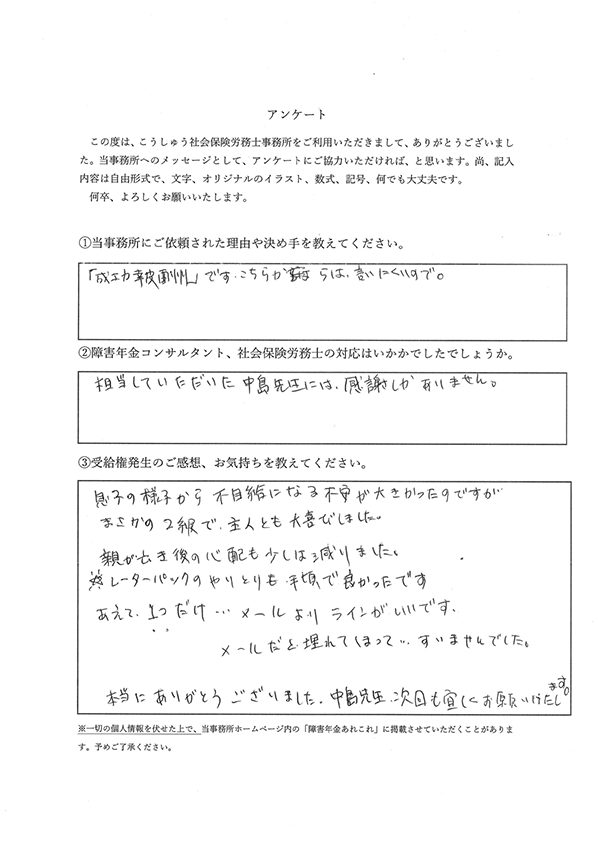 アンケート
この度は、こうしゅう社会保険労務士事務所をご利用いただきまして、ありがとうございまし
た。当事務所へのメッセージとして、アンケートにご協力いただければ、と思います。尚、記入
内容は自由形式で、文字、オリジナルのイラスト、数式、記号、何でも大丈夫です。
何卒、よろしくお願いいたします。
①当事務所にご依頼された理由や決め手を教えてください。
「成功報酬」です。こちらか らは、言いにくいので。
②障害年金コンサルタント、社会保険労務士の対応はいかかでしたでしょうか。
担当していただいた中島先生には、感謝しかありません。
③受給権発生のご感想、お気持ちを教えてください。
息子の様子から不支給になる不安が大きかったのですが
まさかの2級で、主人とも大喜びしました。
親が亡き後の心配も少しは減りました。
※レーターパックのやりとりも手頃で良かったです
あえて、1つだけ… メールよりラインがいいです。
メールだと埋れてしまって… すいませんでした。
本当にありがとうございました。中島先生、次回も宜しくお願いいたします。
※一切の個人情報を伏せた上で、当事務所ホームページ内の「障害年金あれこれ」に掲載させていただくことがありま
す。予めご了承ください。